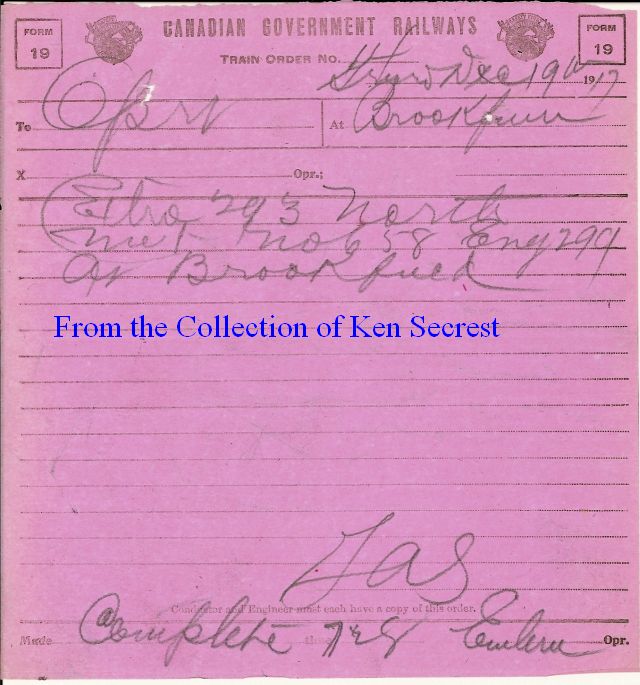 FORM 19
CANADIAN GOVERNMENT RAILWAYS
FORM 19
TRAIN ORDER NO.
Dec 19th 1917
To Opr At Brookfield
X Opr.;
Extra 293 North
meet No 658 Eng 299
At Brookfield
From the Collection of Ken Secrest
Conductor and Engineer must each have a copy of this order.
Made Complete time Opr.